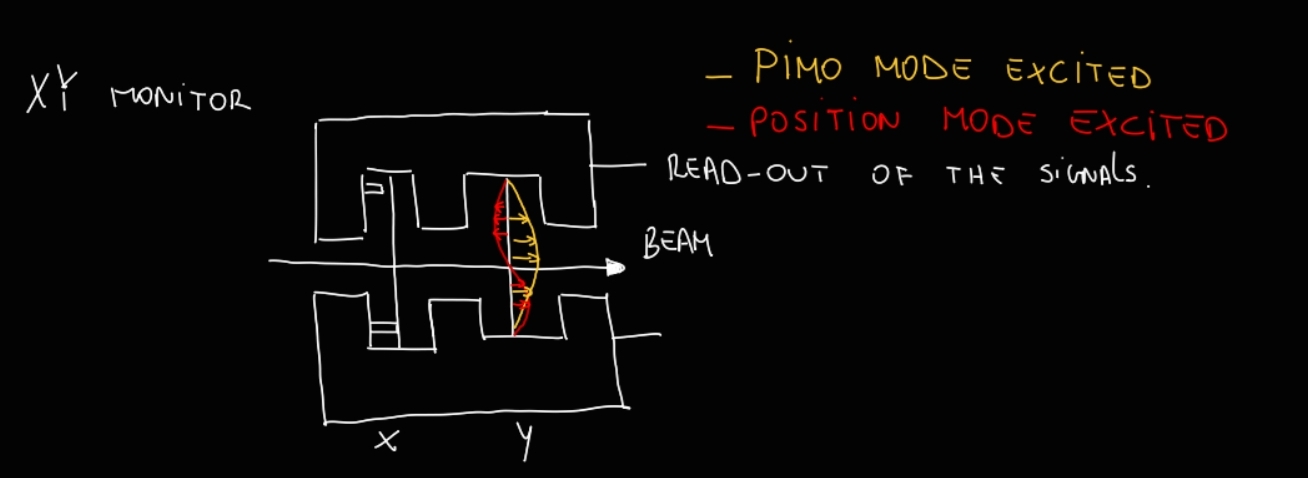 XY MONITOR
– PIMO MODE EXCITED
– POSITION MODE EXCITED
READ-OUT OF THE SIGNALS.
BEAM
X
Y